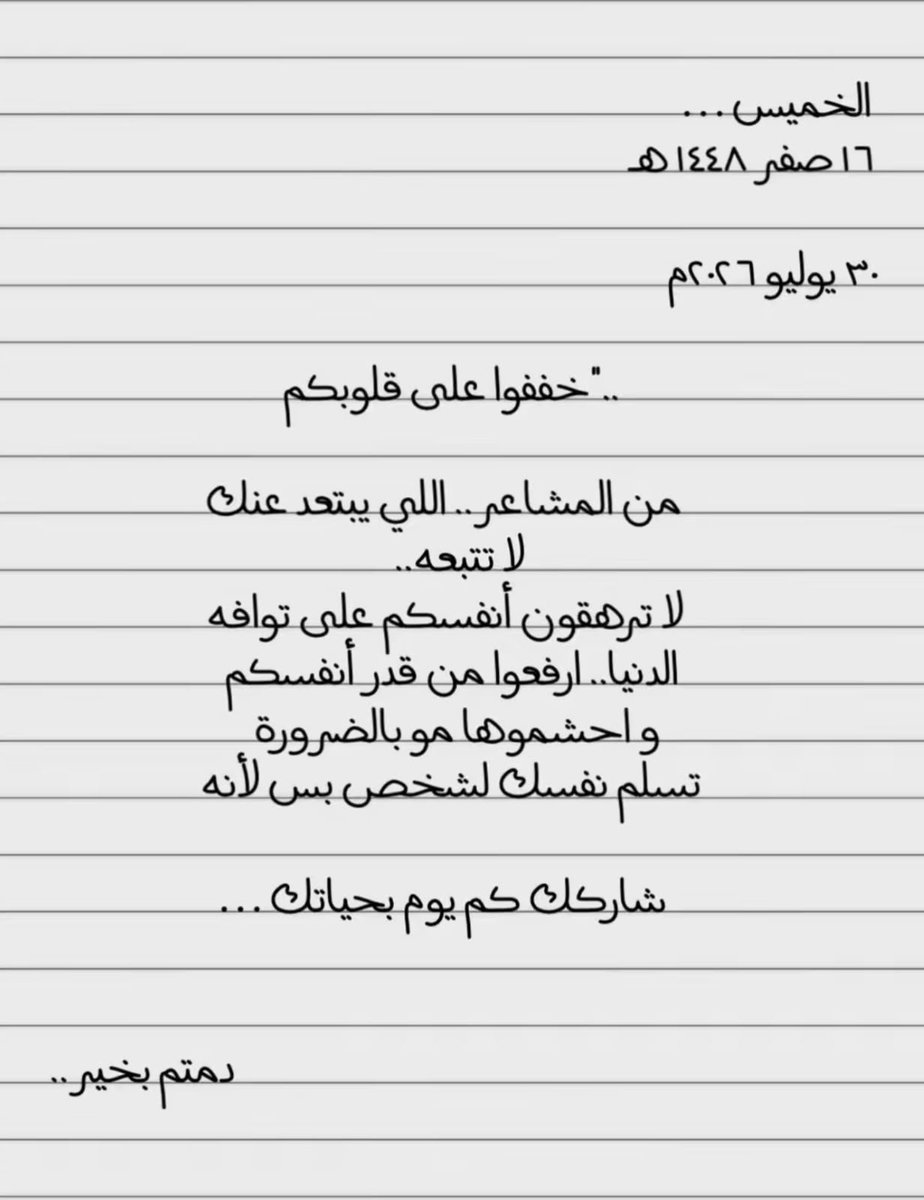 الخميس...
١٦ صفر ١٤٤٨هـ
٣٠ يوليو ٢٠٢٦م
.."خففوا على قلوبكم
من المشاعر.. اللي يبتعد عنك
لا تتبعه..
لا ترهقون أنفسكم على توافه
الدنيا.. ارفعوا من قدر أنفسكم
و احشموها مو بالضرورة
تسلم نفسك لشخص بس لأنه
شاركك كم يوم بحياتك ...
دمتم بخير..